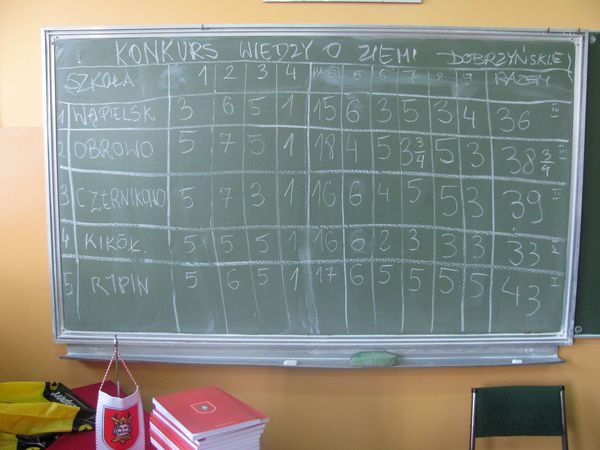 KONKURS WIEDZY O ZIEMI DOBRZYŃSKIEJ
SZKOŁA 1 2 3 4 5 6 7 8 9 RAZEM
1 WĄPIELSK 3 6 5 1 15 6 3 5 3 4 36 IV
2 OBROWO 5 7 5 1 18 4 5 3 3/4 5 3 38 3/4 III
3 CZERNIKOWO 5 7 3 1 16 6 4 5 5 3 39 II
4 KIKÓŁ 5 5 5 1 16 6 2 3 3 3 33 V
5 RYPIN 5 6 5 1 17 6 5 5 5 5 43 I